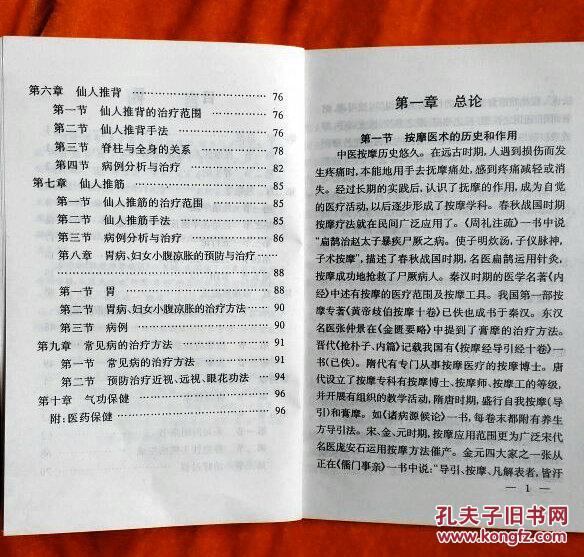 第六章 仙人推背 …………………… 76
第一节 仙人推背的治疗范围 …………… 76
第二节 仙人推背手法 …………………… 76
第三节 脊柱与全身的关系 ……………… 78
第四节 病例分析与治疗 ………………… 82
第七章 仙人推筋 …………………… 85
第一节 仙人推筋的治疗范围 …………… 85
第二节 仙人推筋手法 …………………… 85
第三节 病例分析与治疗 ………………… 86
第八章 胃病、妇女小腹凉胀的预防与治疗 ……
…………………… 88
第一节 胃 ……………………………… 88
第二节 胃病、妇女小腹凉胀的治疗方法 … 90
第三节 病例 …………………………… 90
第九章 常见病的治疗方法 …………… 91
第一节 常见病的治疗方法 ……………… 91
第二节 预防治疗近视、远视、眼花功法 … 94
第十章 气功保健 …………………… 96
附:医药保健 …………………………… 96
第一章 总论
第一节 按摩医术的历史和作用
中医按摩历史悠久。在远古时期,人遇到损伤而发
生疼痛时,本能地用手去抚摩痛处,感到疼痛减轻或消
失。经过长期的实践后,认识了抚摩的作用,成为自觉
的医疗活动,以后逐步形成了按摩学科。春秋战国时期
按摩疗法就在民间广泛应用了。《周礼注疏》一书中说
“扁鹊治赵太子暴疾尸厥之病。使子明炊汤,子仪脉神,
子术按摩”,描述了春秋战国时期,名医扁鹊运用针灸,
按摩成功地抢救了尸厥病人。秦汉时期的医学名著《内
经》中述有按摩的医疗范围及按摩工具。我国第一部按
摩专著《黄帝歧伯按摩十卷》已佚也成书于秦汉。东汉
名医张仲景在《金匮要略》中提到了膏摩的治疗方法。
晋代《抢朴子、内篇》记载我国有《按摩经导引经十卷》一
书(已佚)。隋代有专门从事按摩医疗的按摩博士。唐
代设立了按摩专科有按摩博士、按摩师、按摩工的等级,
并开展有组织的教学活动,隋唐时期,盛行自我按摩(导
引)和膏摩。如《诸病源候论》一书,每卷末都附有养生
方导引法。宋、金、元时期,按摩应用范围更为广泛宋代
名医庞安石运用按摩方法催产。金元四大家之一张从
正在《儒门事亲》一书中说:“导引、按摩、凡解表者,皆汗
— 1 —
孔夫子旧书网
www.kongfz.com